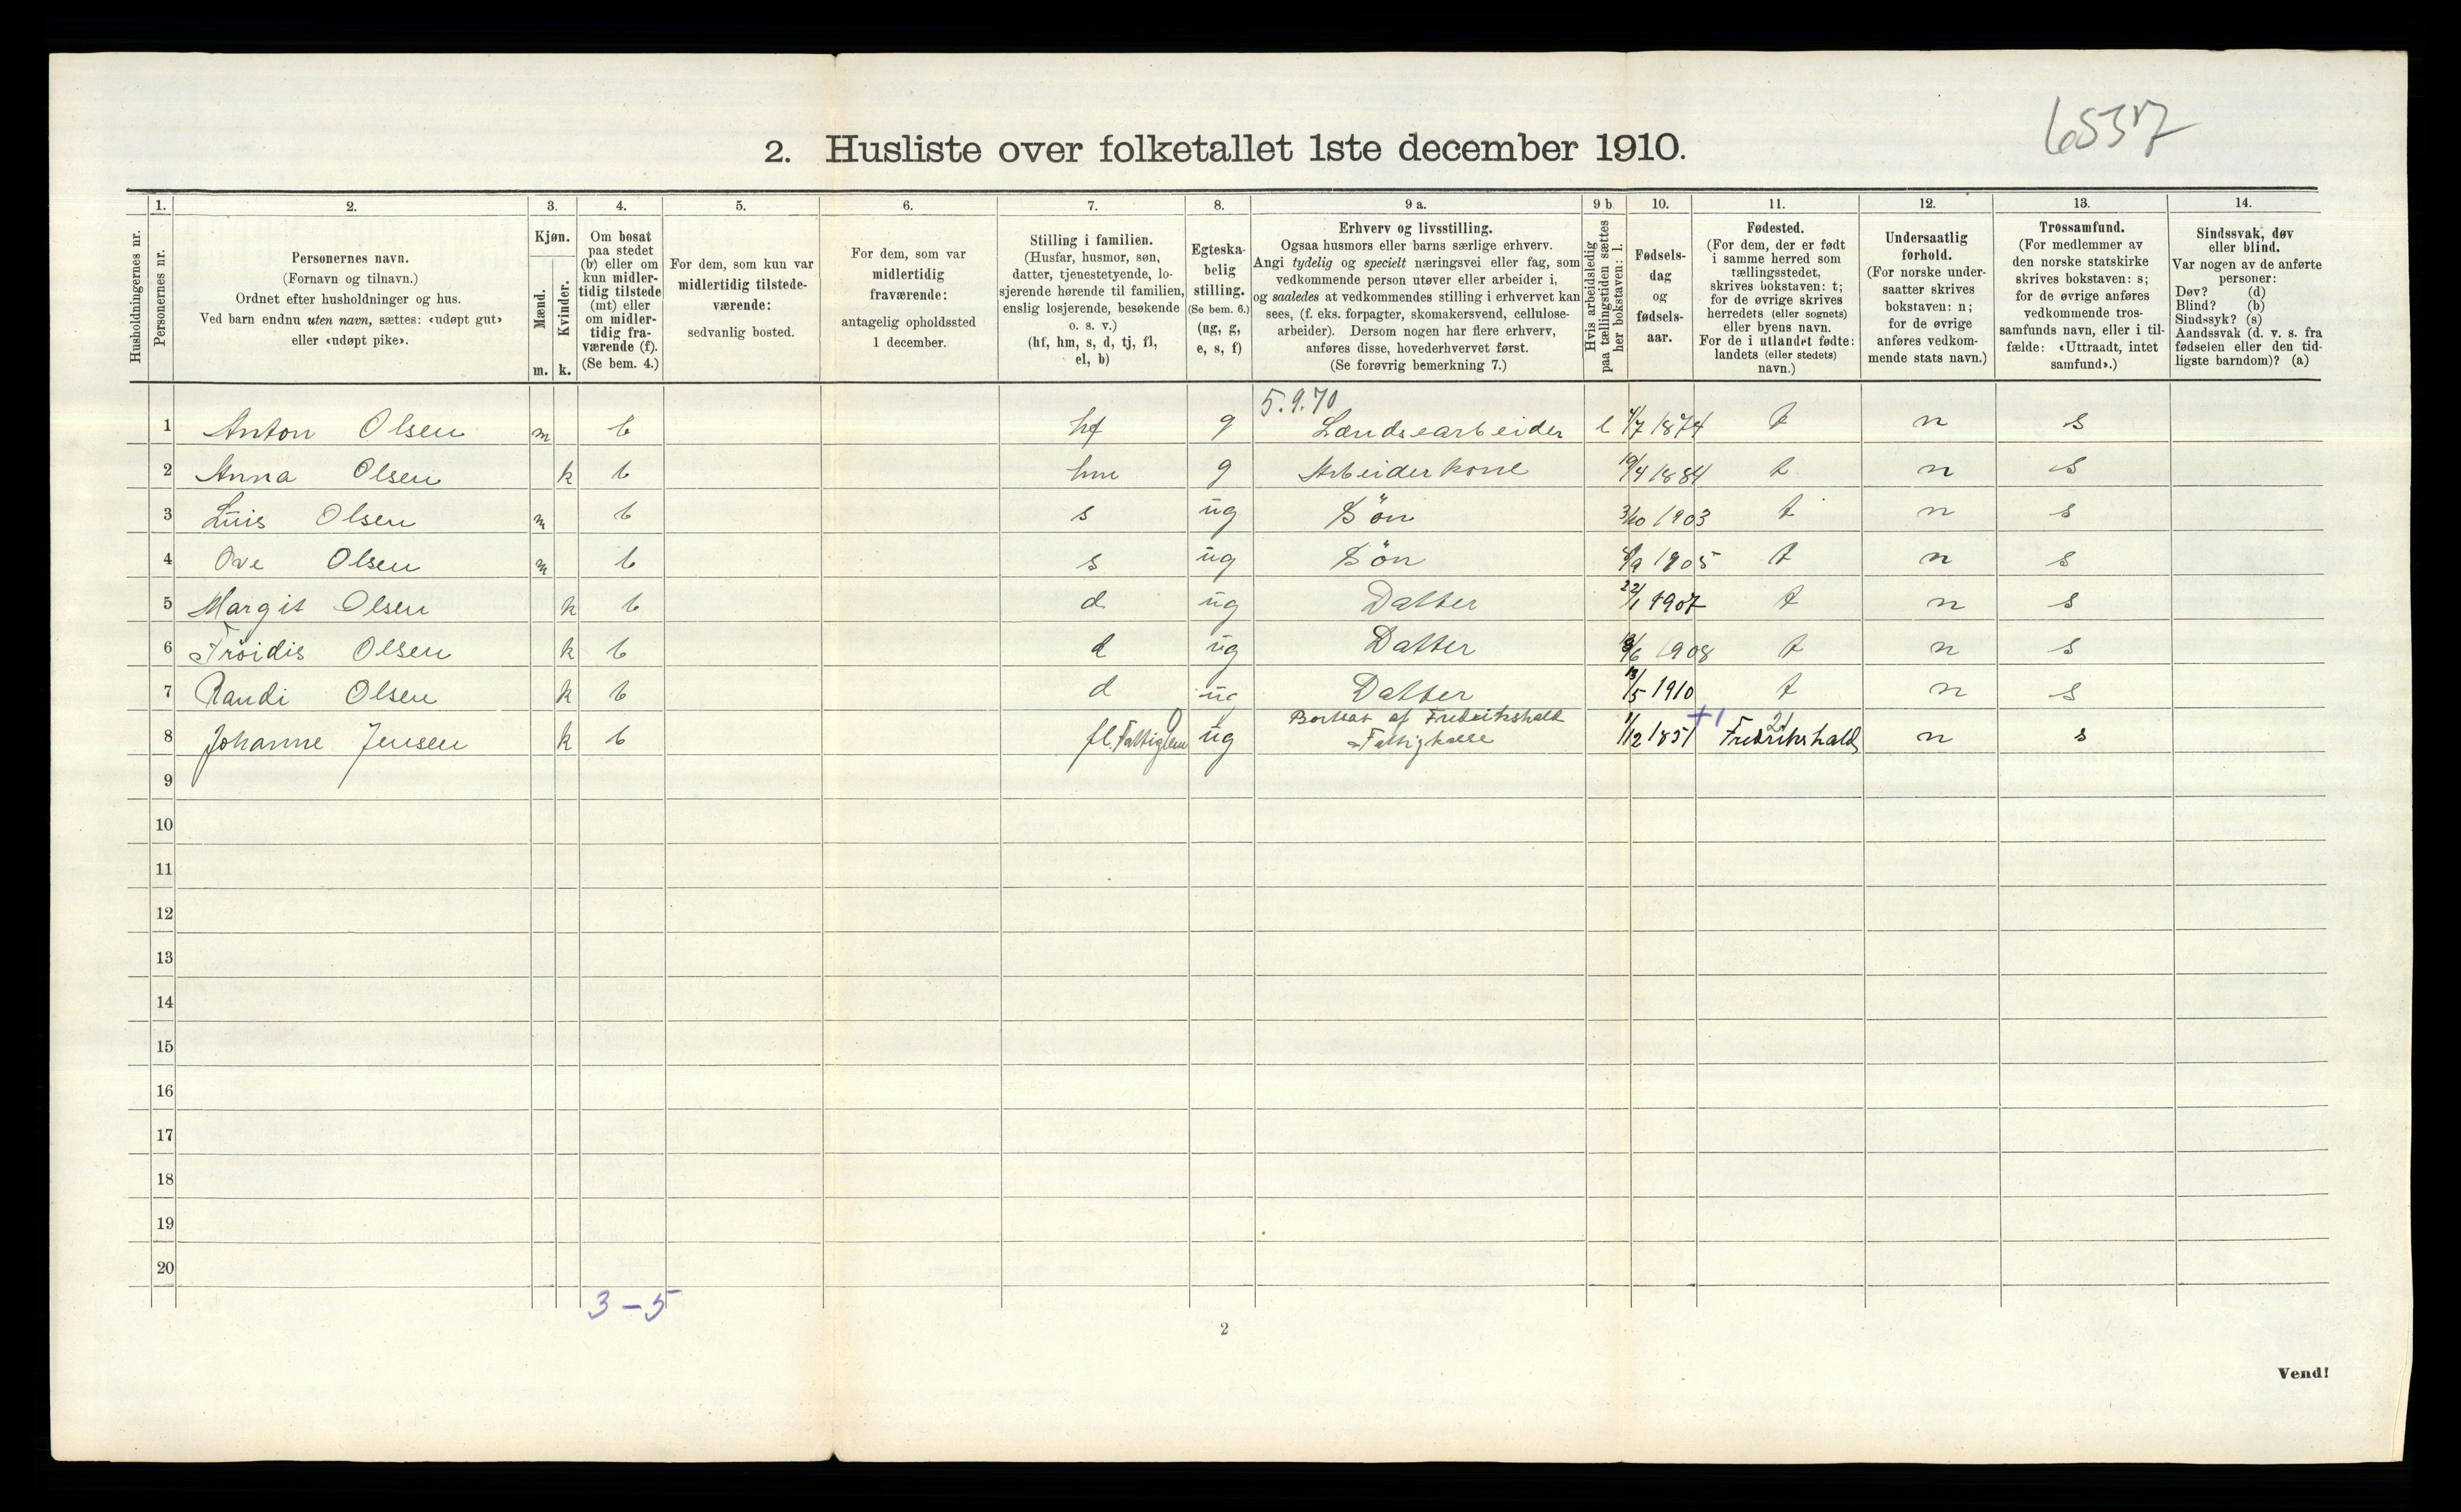 6537
2. Husliste over folketallet 1ste december 1910.
Husholdningernes nr.
1. Personernes nr.
2. Personernes navn. (Fornavn og tilnavn.) Ordnet efter husholdninger og hus. Ved barn endnu uten navn, sættes: «udøpt gut» eller «udøpt pike».
3. Kjøn. Mænd. m. Kvinder. k.
4. Om bosat paa stedet (b) eller om kun midlertidig tilstede (mt) eller om midlertidig fraværende (f). (Se bem. 4.)
5. For dem, som kun var midlertidig tilstedeværende: sedvanlig bosted.
6. For dem, som var midlertidig fraværende: antagelig opholdssted 1 december.
7. Stilling i familien. (Husfar, husmor, søn, datter, tjenestetyende, losjerende hørende til familien, enslig losjerende, besøkende o. s. v.) (hf, hm, s, d, tj, fl, el, b)
8. Egteskabelig stilling. (Se bem. 6.) (ug, g, e, s, f)
9 a. Erhverv og livsstilling. Ogsaa husmors eller barns særlige erhverv. Angi tydelig og specielt næringsvei eller fag, som vedkommende person utøver eller arbeider i, og saaledes at vedkommendes stilling i erhvervet kan sees, (f. eks. forpagter, skomakersvend, cellulosearbeider). Dersom nogen har flere erhverv, anføres disse, hovederhvervet først. (Se forøvrig bemerkning 7.)
9 b. Hvis arbeidsledig paa tællingstiden sættes her bokstaven: l.
10. Fødselsdag og fødselsaar.
11. Fødested. (For dem, der er født i samme herred som tællingsstedet, skrives bokstaven: t; for de øvrige skrives herredets (eller sognets) eller byens navn. For de i utlandet fødte: landets (eller stedets) navn.)
12. Undersaatlig forhold. (For norske undersaatter skrives bokstaven: n; for de øvrige anføres vedkommende stats navn.)
13. Trossamfund. (For medlemmer av den norske statskirke skrives bokstaven: s; for de øvrige anføres vedkommende trossamfunds navn, eller i tilfælde: «Uttraadt, intet samfund».)
14. Sindssvak, døv eller blind. Var nogen av de anførte personer: Døv? (d) Blind? (b) Sindssyk? (s) Aandssvak (d. v. s. fra fødselen eller den tidligste barndom)? (a)
5.9.70
1 Anton Olsen m b hf g Landsearbeider l 4/7 1874 t n s
2 Anna Olsen k b hm g Arbeiderkone 19/4 1884 t n s
3 Luis Olsen m b s ug Søn 3/10 1903 t n s
4 Ove Olsen m b s ug Søn 1905 t n s
5 Margit Olsen k b d ug Datter 22/1 1907 t n s
6 Frøidis Olsen k b d ug Datter 1908 t n s
7 Randi Olsen k b d ug Datter 13/5 1910 t n s
8 Johanne Jensen k b fl. Fattiglem ug Bortsat af Fredrikshald Fattigkasse 1/12 1851 +1 Fredrikshald 21 n s
9
10
11
12
13
14
15
16
17
18
19
20
3 - 5
2
Vend!